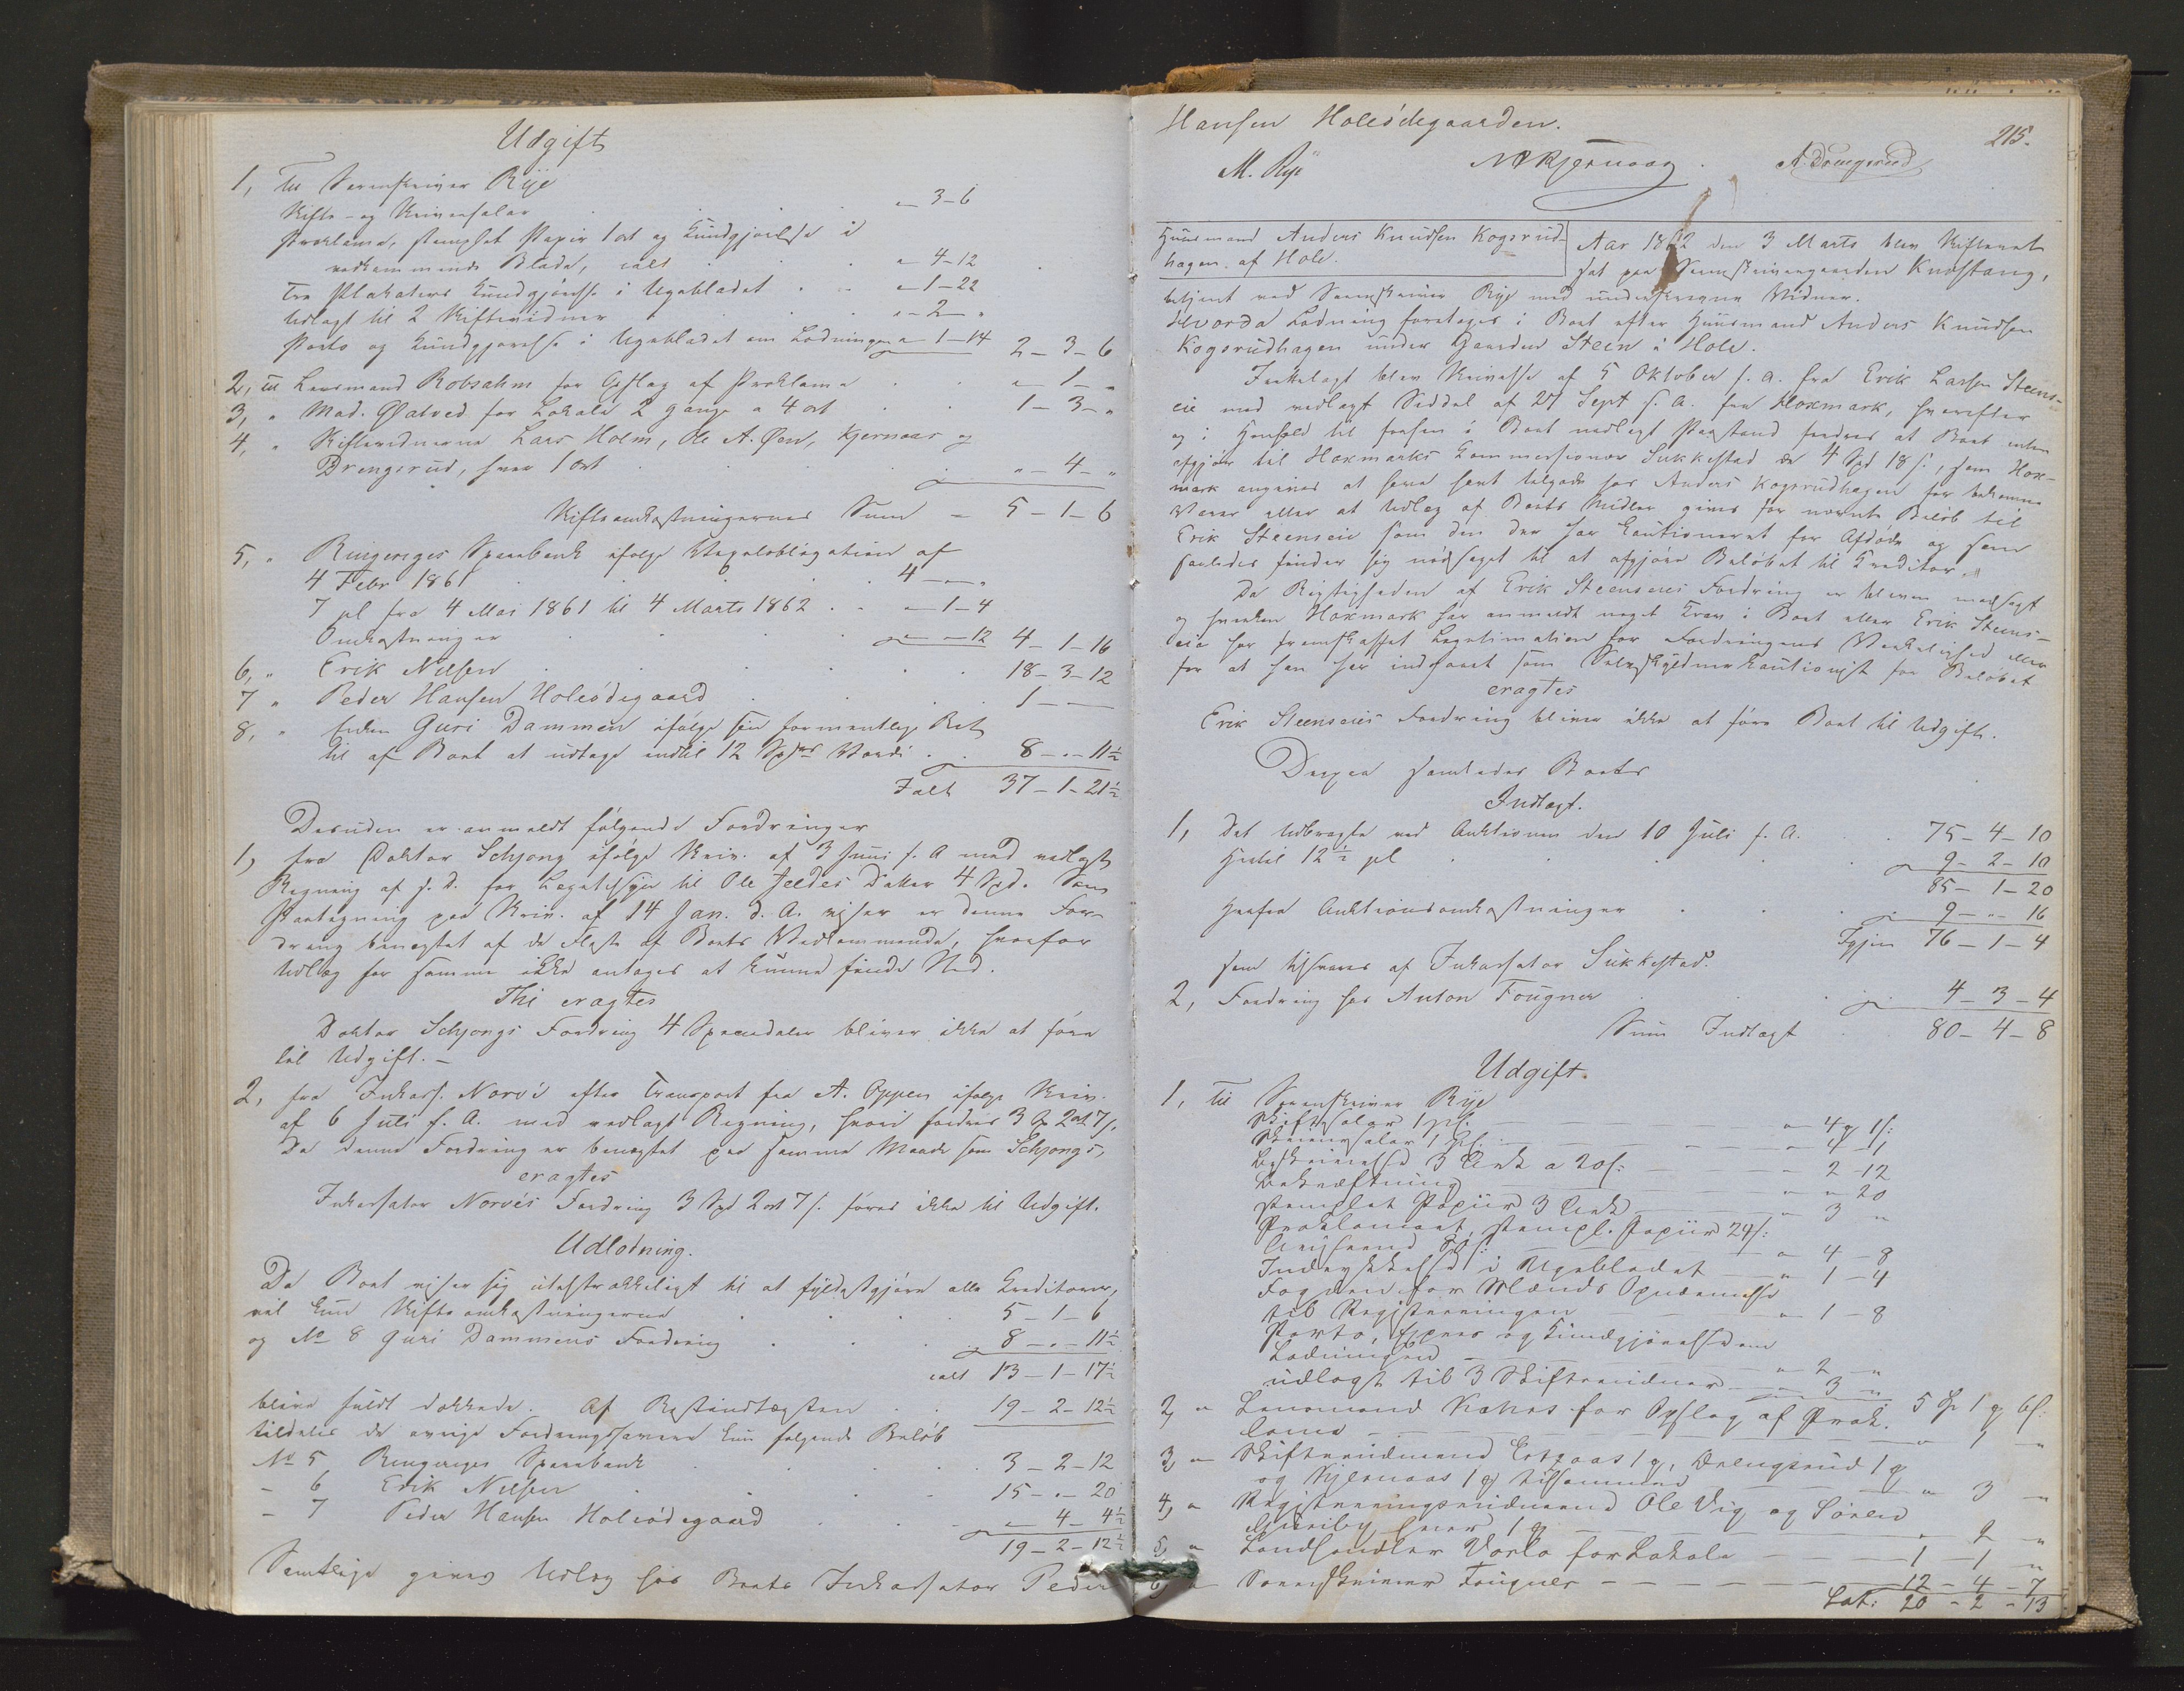 Udgift
1, Til Sorenskriver Rye
Skifte- og Skriversalær " - 3 - 6
Proklama, stemplet Papir 1 ort og Kundgjørelse i
vedkommende Blade, ialt " - 4 - 12
Tre Plakaters Kundgjørelse i Ugebladet " - 1 - 22
Udlagt til 2 Skiftevidner " - 2 - "
Porto og Kundgjørelse i Ugebladet om Lodningen " - 1 - 14 2 - 3 - 6
2, til Lensmand Robsahm for Opslag af Proklama " - 1 - "
3, " Mad. Østved for Lokale 2 gange a 4 ort 1 - 3 - "
4, " Skiftevidnerne Lars Holm, Ole A. Øen, Kjernaas og
Drengsrud, hver 1 ort " - 4 - "
Skifteomkostningernes Sum - 5 - 1 - 6
5, " Ringeriges Sparebank ifølge Vexelobligation af
4 Febr 1861 4 - " - "
7 pCt fra 4 Mai 1861 til 4 Marts 1862 " - 1 - 4
Omkostninger " - " - 12 4 - 1 - 16
6, " Erik Nilsen 18 - 3 - 12
7 " Peder Hansen Holeødegaard 1 - - -
8, " Enken Guri Dammen ifølge sin formentlige Ret
til af Boet at udtage indtil 12 Spdrs Værdi 8 - " - 11½
Ialt 37 - 1 - 21½
Desuden er anmeldt følgende Fordringer
1, fra Doktor Schjong ifølge Skriv. af 3 Juni f. A. med vedlagt
Regning af s. D. for Lægetilsyn til Ole Jeldes Datter 4 Spd. Som
Paategning paa Skriv. af 14 Jan. d. A. viser er denne For-
dring benægtet af de Fleste af Boets Vedkommende, hvorfor
Udlæg for samme ikke antages at kunne finde Sted.
Thi eragtes
Doktor Schjongs Fordring 4 Speciedaler bliver ikke at føre
til Udgift. -
2, fra Inkass. Norvi efter Transport fra A. Oppen ifølge Skriv.
af 6 Juli f. A. med vedlagt Regning, hvori fordres 3 Sp 2 ort 7 s.
Da denne Fordring er benægtet paa samme Maade som Schjongs,
eragtes
Inkassator Norvis Fordring 3 Spd 2 ort 7 s. føres ikke til Udgift.
Udlodning.
Da Boet viser sig utilstrækkeligt til at fyldestgjøre alle Kreditorer,
vil kun Skifteomkostningerne 5 - 1 - 6
og No 8 Guri Dammens Fordring 8 - " - 11½
ialt 13 - 1 - 17½
blive fuldt dækkede. Af Restindtægten 19 - 2 - 12½
tildeles de øvrige Fordringshavere kun følgende Beløb
No 5 Ringeriges Sparebank 3 - 2 - 12
- 6 Erik Nilsen 15 - " - 20
- 7 Peder Hansen Holeødegaard " - 4 - 4½
19 - 2 - 12½
Samtlige gives Udlæg hos Boets Inkassator Peder
Hansen Holeødegaarden.
215.
M. Rye N P Kjernaas. A. Drengsrud
Huusmand Anders Knudsen Kogsrud-
hagen af Hole.
Aar 1862 den 3 Marts blev Skifteret
sat paa Sorenskrivergaarden Knestang,
betjent ved Sorenskriver Rye med underskrevne Vidner.
Hvorda Lodning foretages i Boet efter Huusmand Anders Knudsen
Kogsrudhagen under Gaarden Steen i Hole.
Fremlagt blev Skrivelse af 5 Oktober f. A. fra Erik Larsen Steens-
eie med vedlagt Seddel af 27 Sept s. A. fra Hoxmark, hvorefter
og i Henhold til hans i Boet nedlagt Paastand fordres at Boet enten
afgjør til Hoxmarks Kommissionær Sukkestad de 4 Spd 18 s., som Hox-
mark angives at have havt tilgode hos Anders Kogsrudhagen for bekomne
Varer eller at Udlæg af Boets Midler gives for nævnte Beløb til
Erik Steenseie som den der har kautioneret for Afdøde og som
saaledes finder sig nødsaget til at afgjøre Beløbet til Kreditor."
Da Rigtigheden af Erik Steenseies Fordring er bleven modsagt
og hverken Hoxmark har anmeldt noget Krav i Boet eller Erik Steens-
eie har fremskaffet Legitimation for Fordringens Verkelighed eller
for at han har indfriet som Selvskyldnerkautionist for Beløbet
eragtes
Erik Steenseies Fordring bliver ikke at føre Boet til Udgift.
Derpaa samledes Boets
Indtægt.
1, Det Udbragte ved Auktionen den 10 Juli f. A. 75 - 4 - 10
Hertil 12½ pCt 9 - 2 - 10
85 - 1 - 20
Herfra Auktionsomkostninger 9 - " - 16
Igjen 76 - 1 - 4
som tilsvares af Inkassator Sukkestad.
2, Fordring hos Anton Fougner 4 - 3 - 4
Sum Indtægt 80 - 4 - 8
Udgift.
1, Til Sorenskriver Rye
Skiftesalær 1 pCt. " 4 ort 1 s.
Skriversalær 1 pCt. " 4 - 1
Beskrivelse 3 Ark a 20 s. 2 - 12
Bekræftning " " 20
stemplet Papiir 3 Ark " 3 "
Proklamaet, stempl. Papiir 24 s.
" 4 - 8
Indrykkelse i Ugebladet " 1 - 4
Fogden for Mænds Opnævnelse
til Registreringen " 1 - 8
Porto, og Kundgjørelse om
Lodningen " 2 "
udlagt til 3 Skiftevidner " 3 " 5 Sp 1 ort 6 s.
2, " Lensmand for Opslag af Prok-
lama " 1 "
3, " Skiftevidnerne 1 ort, Drengsrud 1 ort
og Kjernaas 1 ort tilsammen " 3 "
4, " Registreringsvidnerne Ole Vig og Søren
hver 1 ort " 2 "
5, " Landhandler for Lokale 1 1 "
6, " Sorenskriver Fougner 12 - 4 - 7
Lat: 20 - 2 - 13